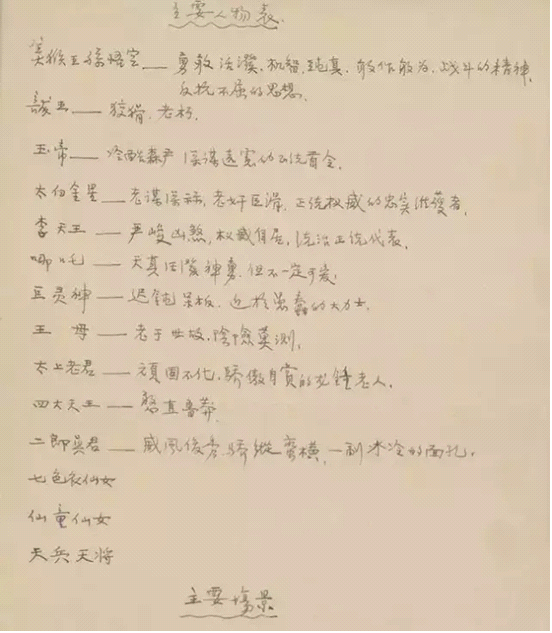 主要人物表
美猴王孫悟空——勇敢活潑、机智、純真、敢作敢为、战斗的精神、
反抗不屈的思想.
龍王——狡猾、老朽.
玉帝——冷酷森严 深謀遠
太白金星——老謀深祘, 老奸巨滑, 正统权威的忠实維護者,
李天王——严峻凶煞, 权威自居, 统治正统代表,
哪吒——天真活潑神勇, 但不一定可爱.
巨灵神——迟鈍呆板, 近於愚蠢的大力士.
王 母——老于世故, 陰險莫測.
太上老君——頑固不化, 驕傲自賞的龙鍾老人.
四大天王——憨直魯莽.
二郎真君——威風俊秀 驕縱蛮横, 一副冰冷的面孔.
七色衣仙女
仙童仙女
天兵天将
主要場景